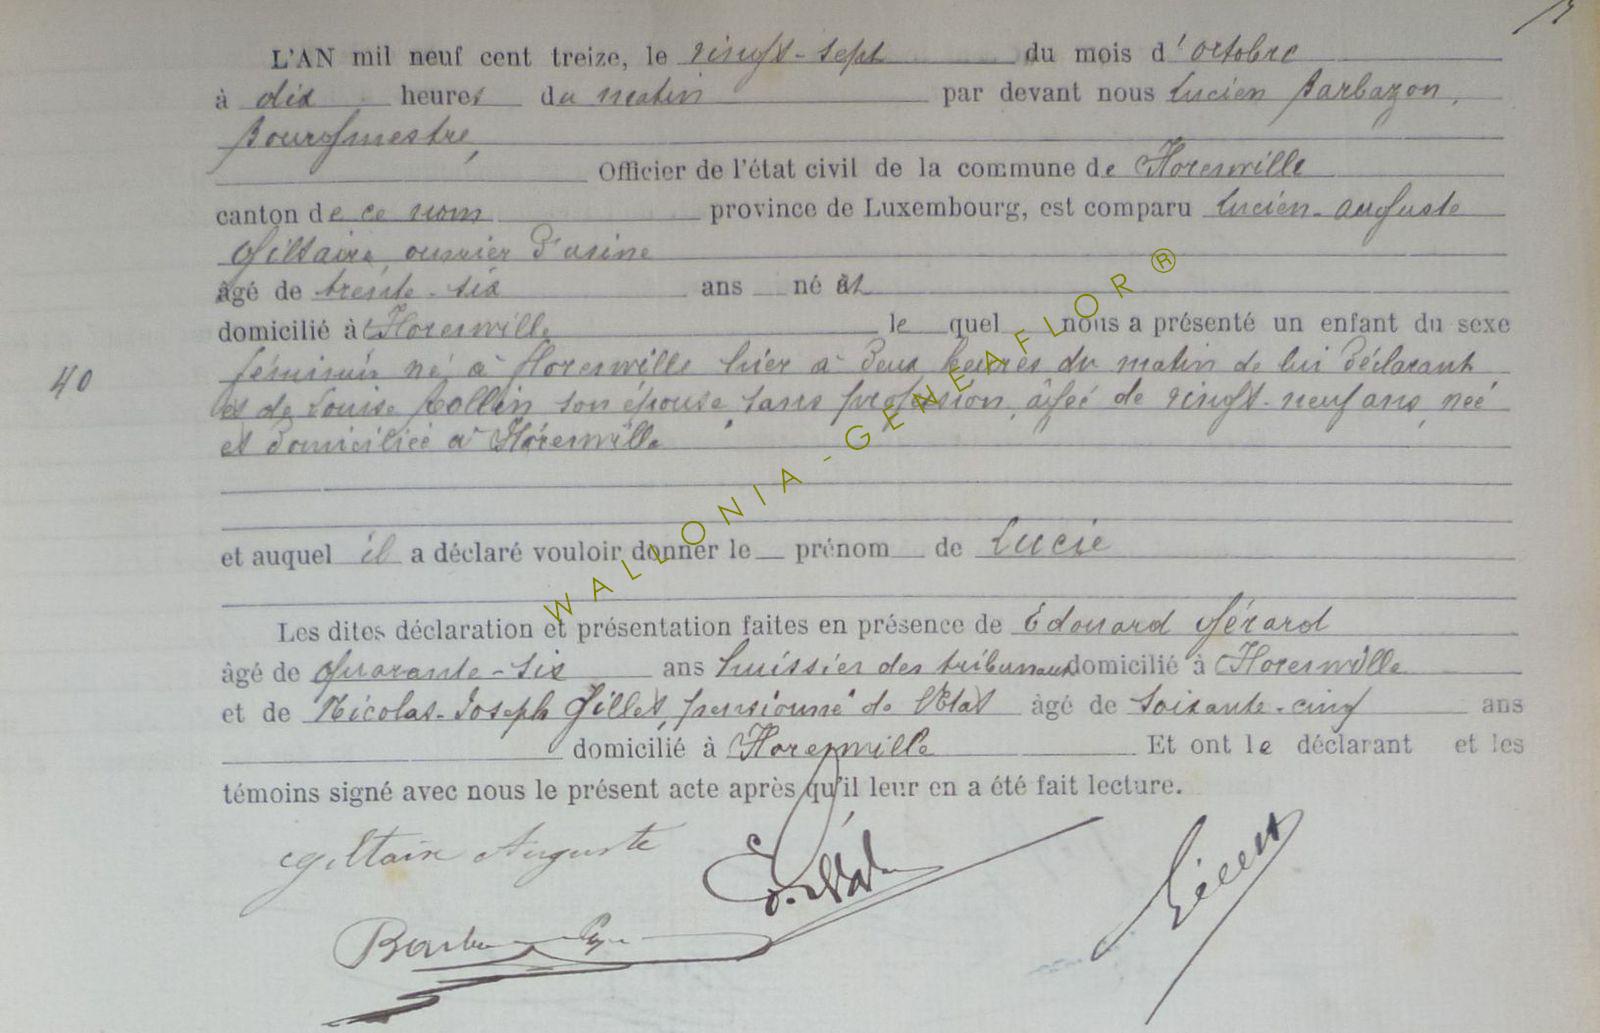 L'AN mil neuf cent treize, le vingt-sept du mois d'octobre
à dix heures du matin par devant nous Lucien Barbazon,
Bourgmestre,
Officier de l'état civil de la commune de Florenville
canton de ce nom province de Luxembourg, est comparu Lucien-Auguste
Giltaire, ouvrier d'usine
âgé de trente-six ans né et
domicilié à Florenville lequel nous a présenté un enfant du sexe
40
féminin né à Florenville hier à deux heures du matin de lui déclarant
et de Louise Collin son épouse, sans profession, âgée de vingt-neuf ans, née
et domiciliée à Florenville
et auquel il a déclaré vouloir donner le prénom de Lucie
Les dites déclaration et présentation faites en présence de Edouard Gérard
âgé de quarante-six ans huissier des tribunaux domicilié à Florenville
et de Nicolas-Joseph Gillet, pensionné de l'Etat âgé de soixante-cinq ans
domicilié à Florenville Et ont le déclarant et les
témoins signé avec nous le présent acte après qu'il leur en a été fait lecture.
Giltaire Auguste
WALLONIA-GENEAFLOR®